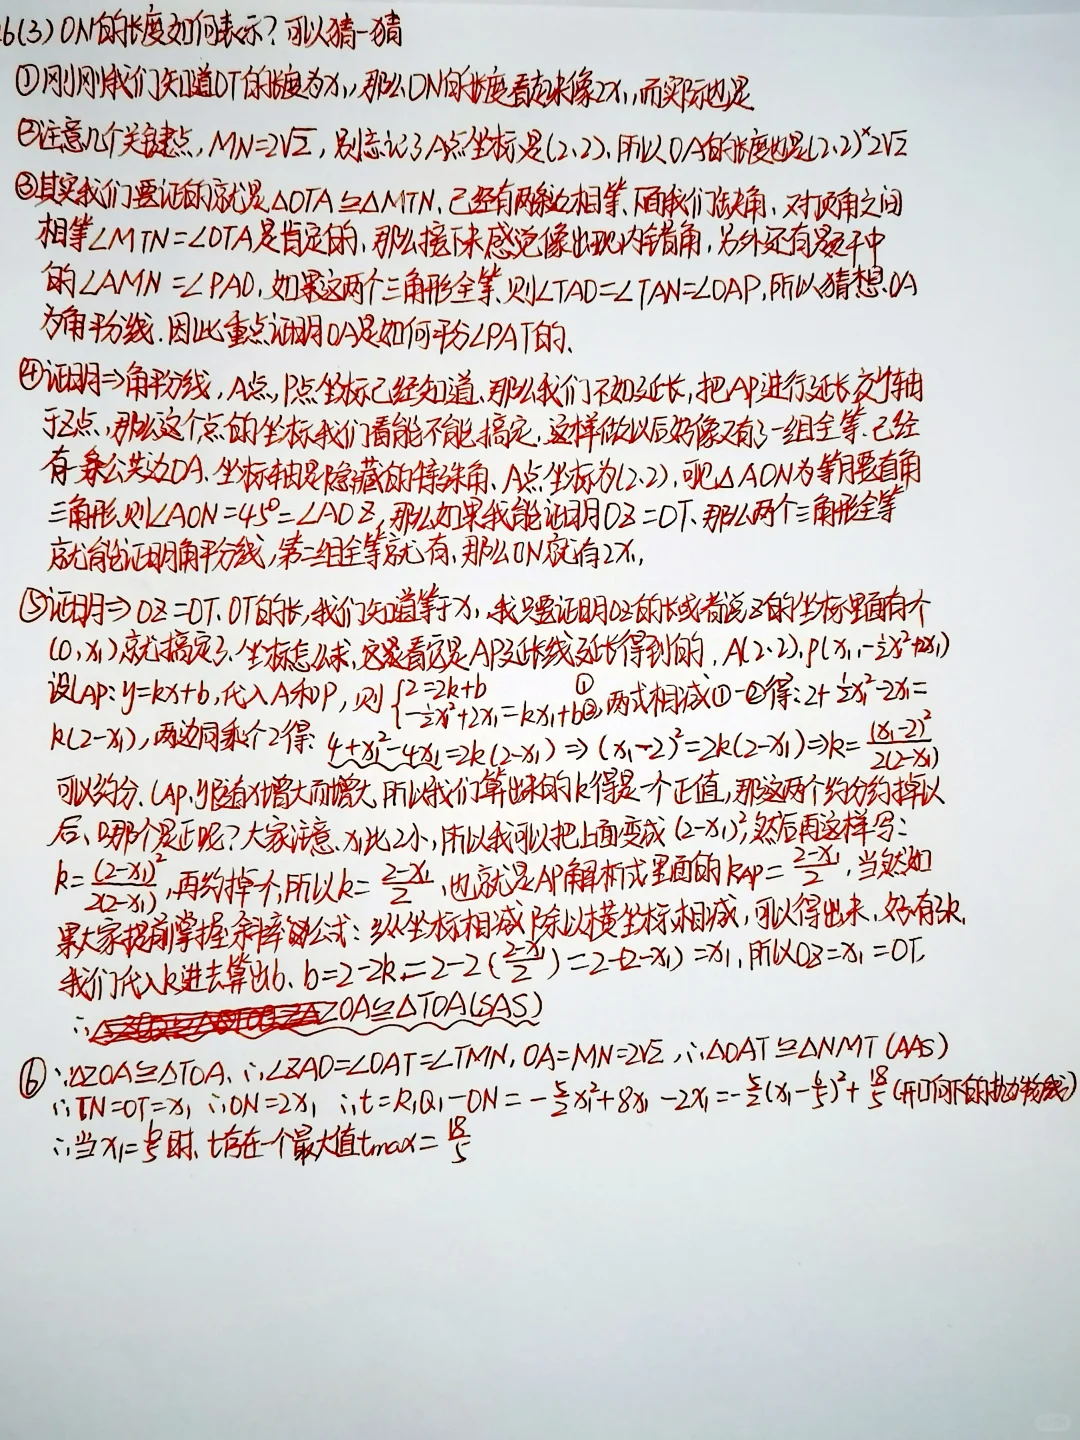 26(3) ON的长度如何表示?可以猜一猜
①刚刚我们知道OT的长度为x₁,那么ON的长度看起来像2x₁,而实际也是
②注意几个关键点,MN=2√2,别忘记了A点坐标是(2,2).所以OA的长度也是(2,2)ˣ2√2
③其实我们要证的就是△OTA≌△MTN.已经有两条边相等、下面我们找角、对顶角之间
相等∠MTN=∠OTA是肯定的,那么接下来感觉像出现内错角,另外还有题干中
的∠AMN=∠PAO,如果这两个三角形全等,则∠TAO=∠TAN=∠OAP,所以猜想OA
为角平分线.因此重点证明OA是如何平分∠PAT的.
④证明⇒角平分线,A点,P点坐标已经知道、那么我们不如延长,把AP进行延长交y轴
于Z点,那么这个点的坐标我们看能不能搞定,这样做以后好像又有了一组全等.已经
有一条公共边OA.坐标轴是隐藏的特殊角、A点坐标为(2,2),可见△AON为等腰直角
三角形,则∠AON=45°=∠AOZ,那么如果我能证明OZ=OT、那么两个三角形全等
就能证明角平分线,第二组全等就有,那么ON就有2x₁,
⑤证明⇒OZ=OT、OT的长,我们知道等于x₁,我只要证明OZ的长或者说Z的坐标里面有个
(0,x₁)就搞定了、坐标怎么求,它是看它是AP延长线延长得到的,A(2,2),P(x₁,-½x²+2x₁)
设LAP:y=kx+b,代入A和P,则{2=2k+b ①
-½x₁²+2x₁=kx₁+b②,两式相减①-②得:2+½x²-2x₁=
k(2-x₁),两边同乘个2得:4+x₁²-4x₁=2k(2-x₁)⇒(x₁-2)²=2k(2-x₁)⇒k=(x₁-2)²/2(2-x₁)
可以约分、LAP,y随着x增大而增大,所以我们算出来的k得是一个正值,那这两个约分约掉以
后、哪个是正呢?大家注意、x₁比2小,所以我可以把上面变成(2-x₁)²,然后再这样写:
k=(2-x₁)²/2(2-x₁),再约掉个,所以k=(2-x₁)/2,也就是AP解析式里面的kAP=(2-x₁)/2,当然如
果大家提前掌握斜率的公式:纵坐标相减除以横坐标相减,可以得出来,好有k,
我们代入k进去算出b、b=2-2k=2-2((2-x₁)/2)=2-(2-x₁)=x₁,所以OZ=x₁=OT,
∴△ZOA≌△TOA(SAS)
⑥∵△ZOA≌△TOA、∴∠ZAO=∠OAT=∠TMN,OA=MN=2√2,∴△OAT≌△NMT(AAS)
∴TN=OT=x₁ ∴ON=2x₁ ∴t=R₁Q₁-ON=-5/2x₁²+8x₁-2x₁=-5/2(x₁-6/5)²+18/5(开口向下的抛物线)
∴当x₁=6/5时、t存在一个最大值tmax=18/5